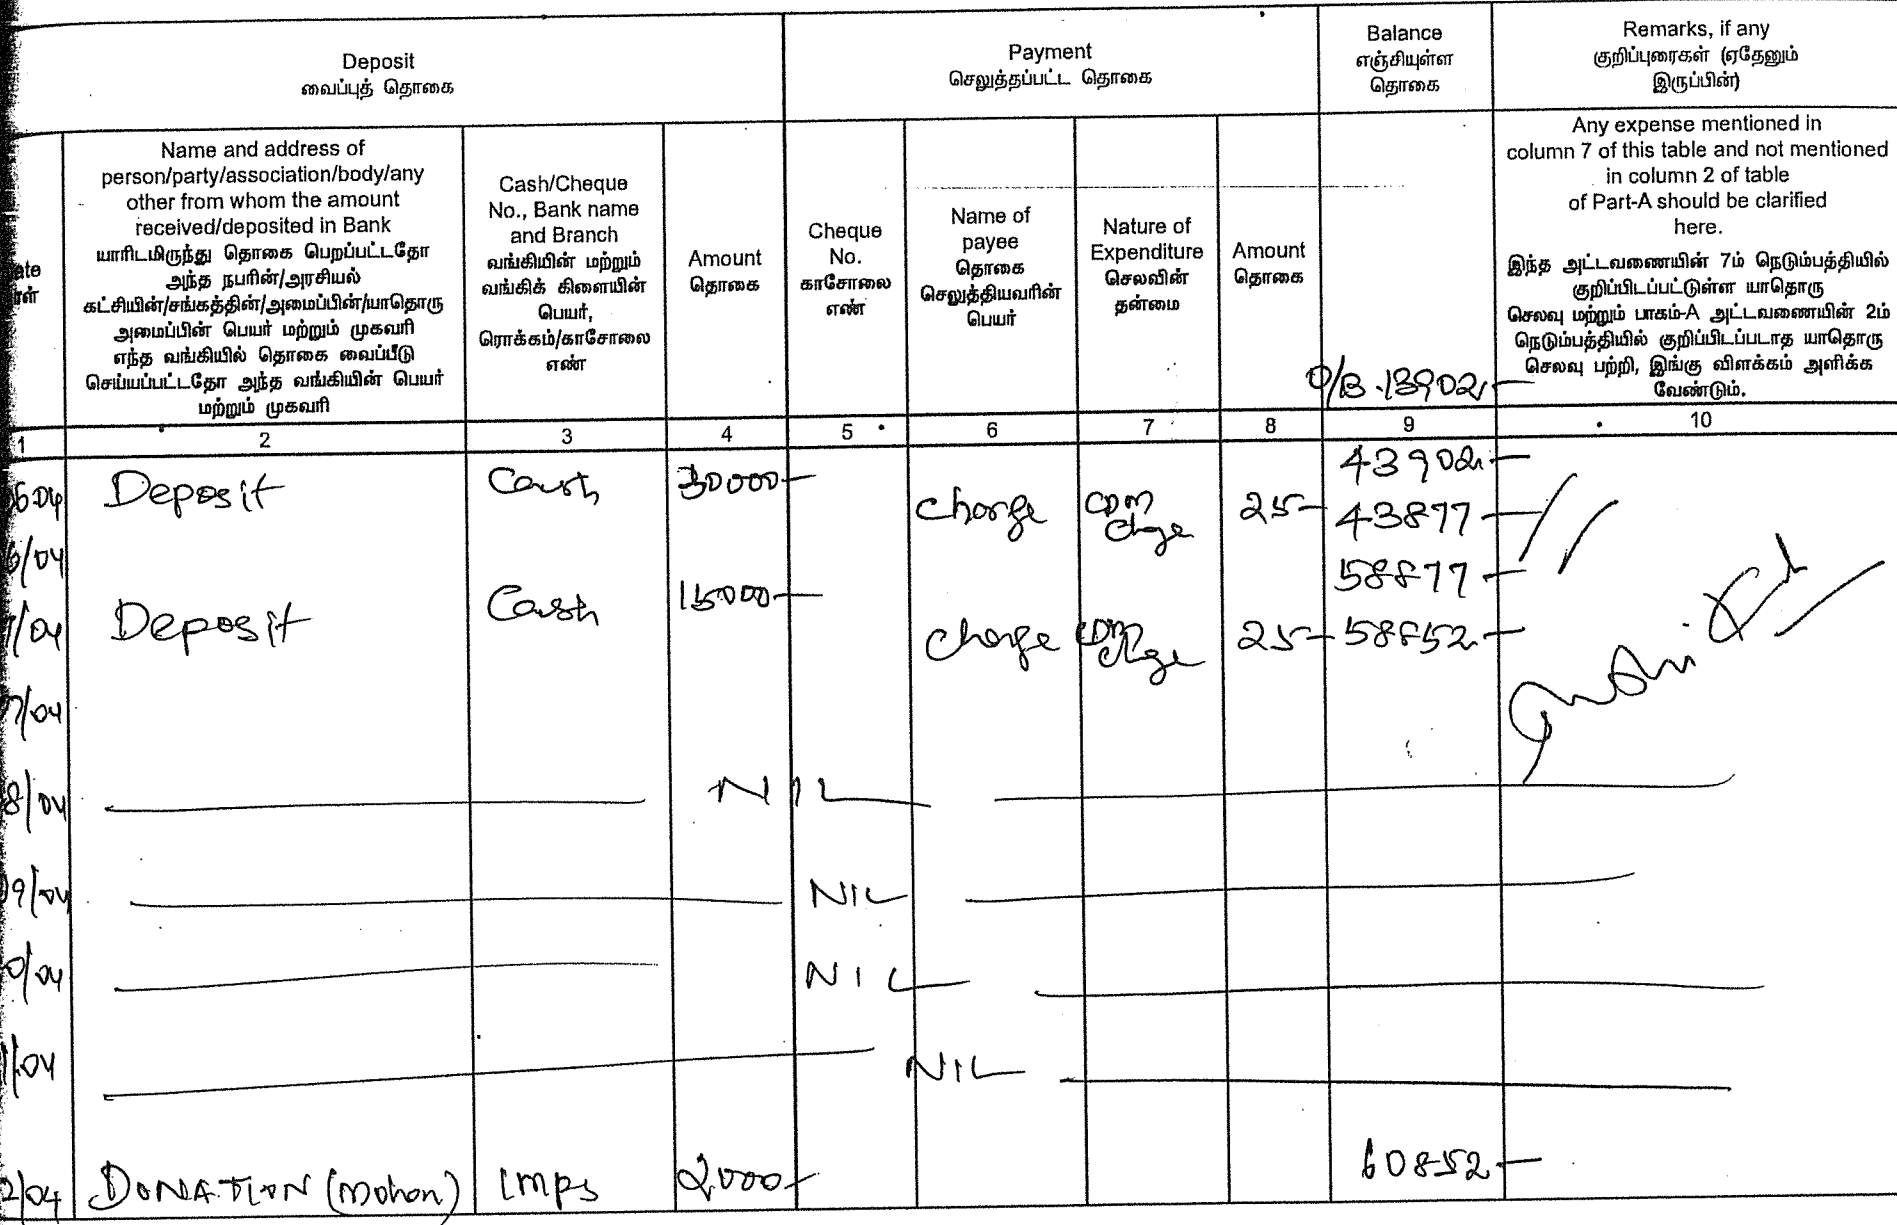 Deposit
வைப்புத் தொகை
Payment
செலுத்தப்பட்ட தொகை
Balance
எஞ்சியுள்ள
தொகை
Remarks, if any
குறிப்புரைகள் (ஏதேனும்
இருப்பின்)
Name and address of
person/party/association/body/any
other from whom the amount
received/deposited in Bank
யாரிடமிருந்து தொகை பெறப்பட்டதோ
அந்த நபரின்/அரசியல்
கட்சியின்/சங்கத்தின்/அமைப்பின்/யாதொரு
அமைப்பின் பெயர் மற்றும் முகவரி
எந்த வங்கியில் தொகை வைப்பீடு
செய்யப்பட்டதோ அந்த வங்கியின் பெயர்
மற்றும் முகவரி
Cash/Cheque
No., Bank name
and Branch
வங்கியின் மற்றும்
வங்கிக் கிளையின்
பெயர்,
ரொக்கம்/காசோலை
எண்
Amount
தொகை
Cheque
No.
காசோலை
எண்
Name of
payee
தொகை
செலுத்தியவரின்
பெயர்
Nature of
Expenditure
செலவின்
தன்மை
Amount
தொகை
O/B.13902/-
Any expense mentioned in
column 7 of this table and not mentioned
in column 2 of table
of Part-A should be clarified
here.
இந்த அட்டவணையின் 7ம் நெடும்பத்தியில்
குறிப்பிடப்பட்டுள்ள யாதொரு
செலவு மற்றும் பாகம்-A அட்டவணையின் 2ம்
நெடும்பத்தியில் குறிப்பிடப்படாத யாதொரு
செலவு பற்றி, இங்கு விளக்கம் அளிக்க
வேண்டும்.
1 2 3 4 5 6 7 8 9 10
06.04 Deposit Cash 30000- 43902-
6/04 Charge CDM Chge 25- 43877-
7/04 Deposit Cash 15000- 58877-
7/04 Charge CDM Chge 25- 58852-
8/04 NIL
09/04 NIL
0/04 NIL
1/04 NIL
2/04 DONATION (Mohan) Imps 2000- 60852-